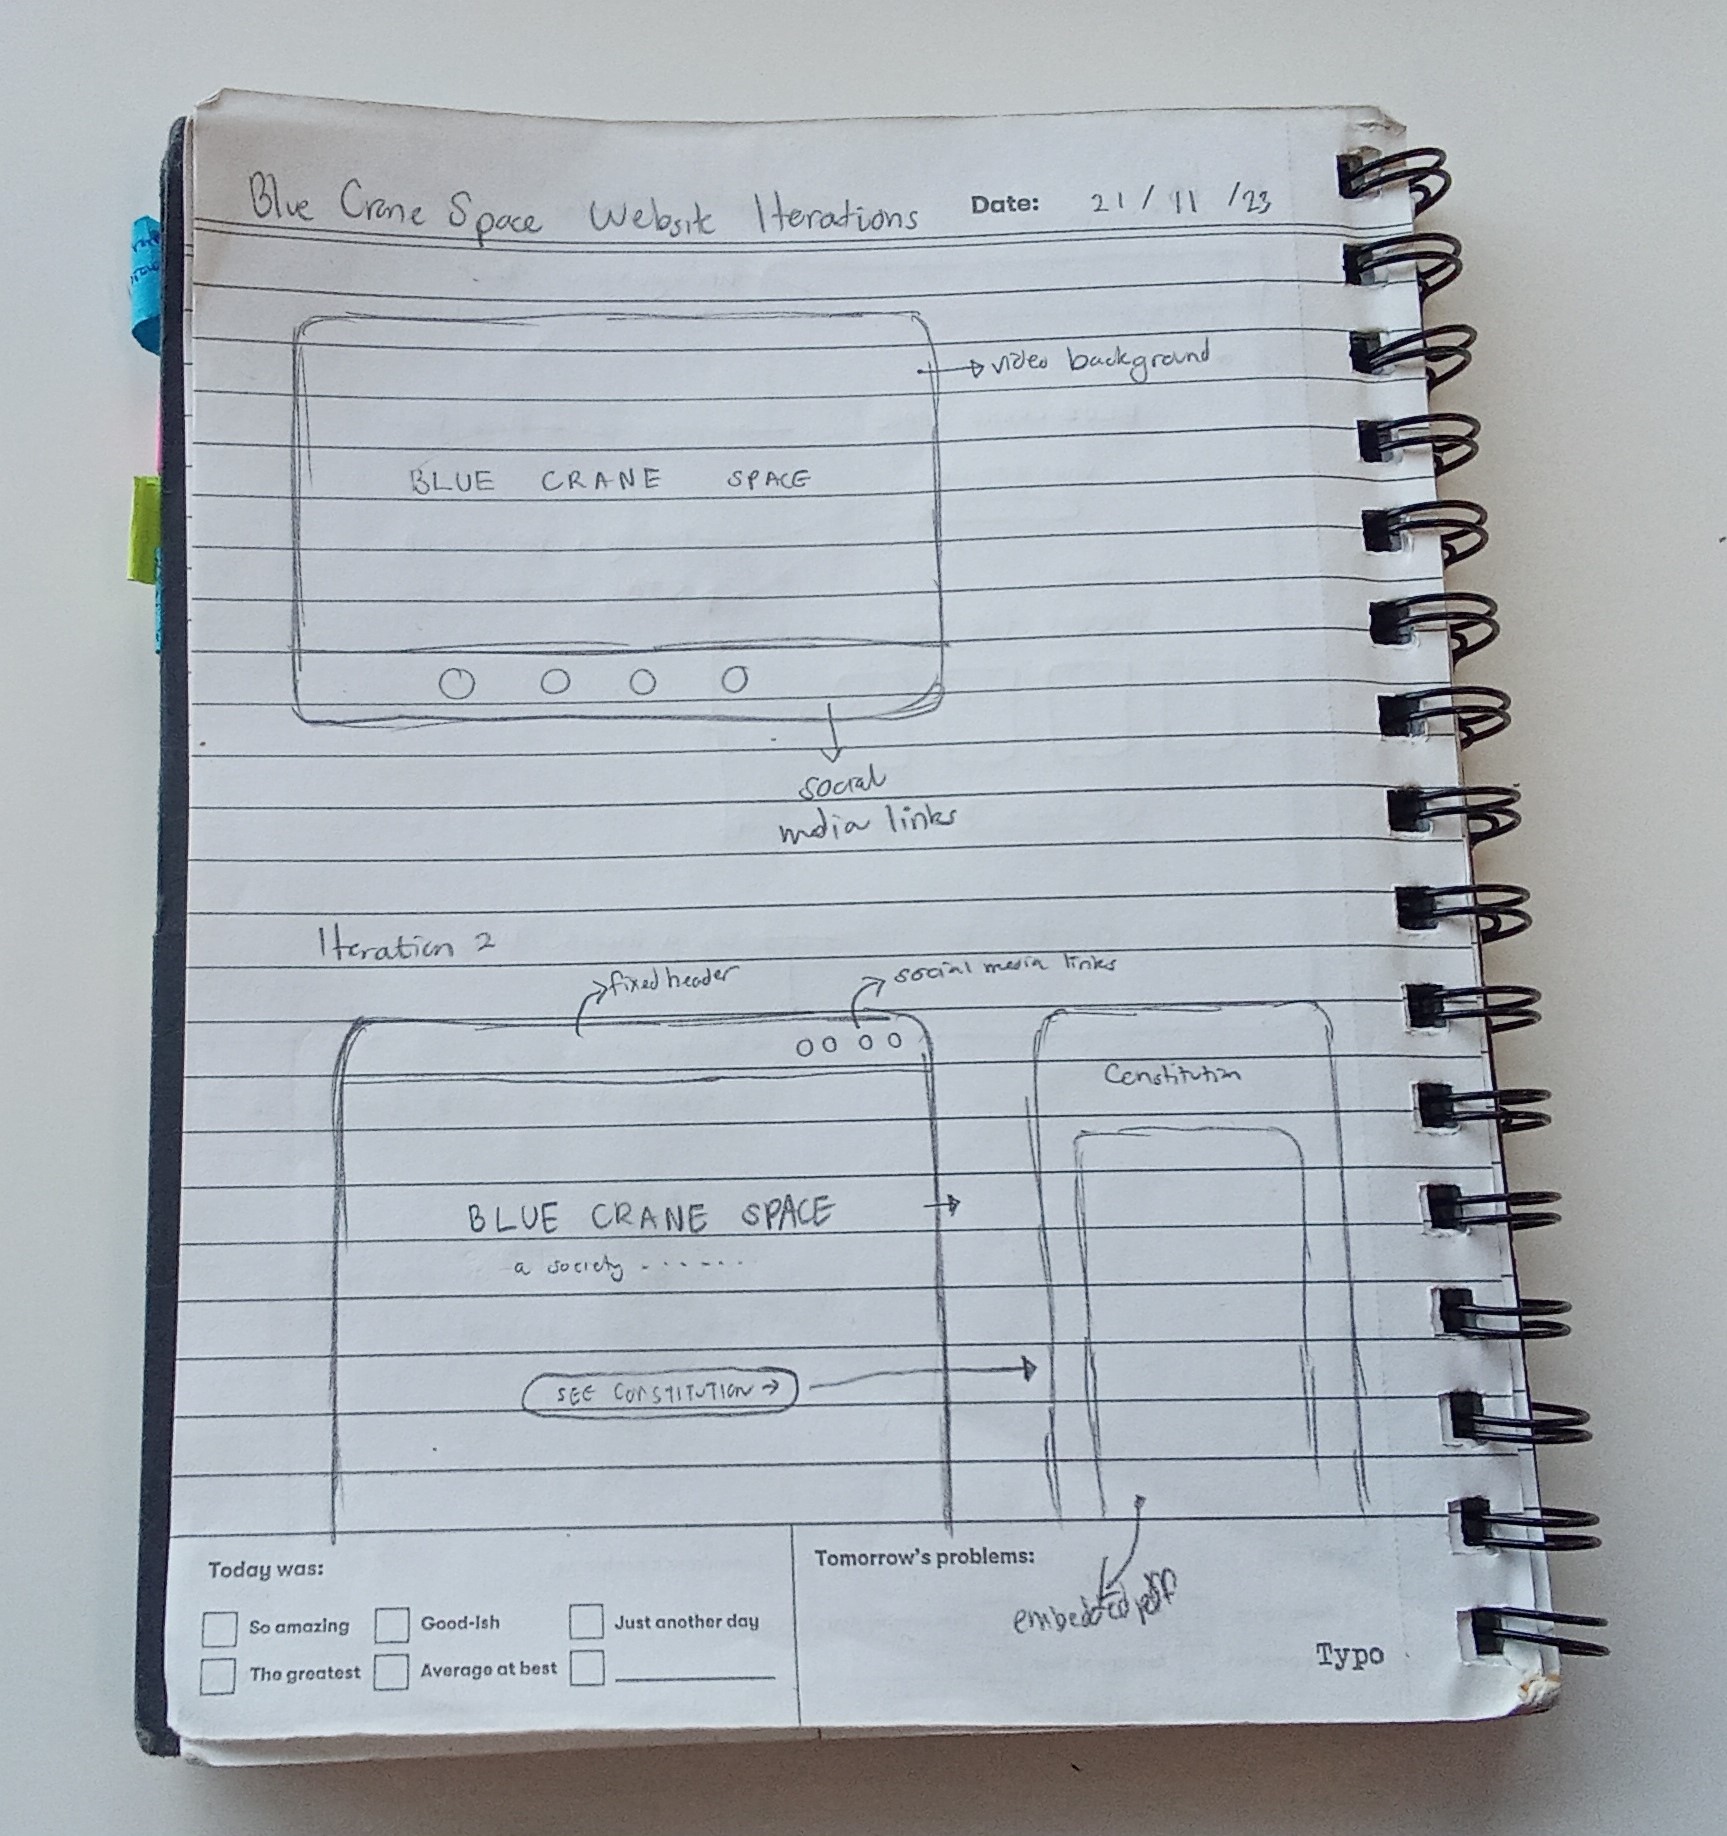 Blue Crane Space Website Iterations Date: 21 / 11 /23
video background
BLUE CRANE SPACE
social
media links
Iteration 2
fixed header
social media links
Constitution
BLUE CRANE SPACE
a society - - - - - -
SEE CONSTITUTION →
Today was:
So amazing Good-Ish Just another day
The greatest Average at best
Tomorrow's problems:
embedded pdf
Typo